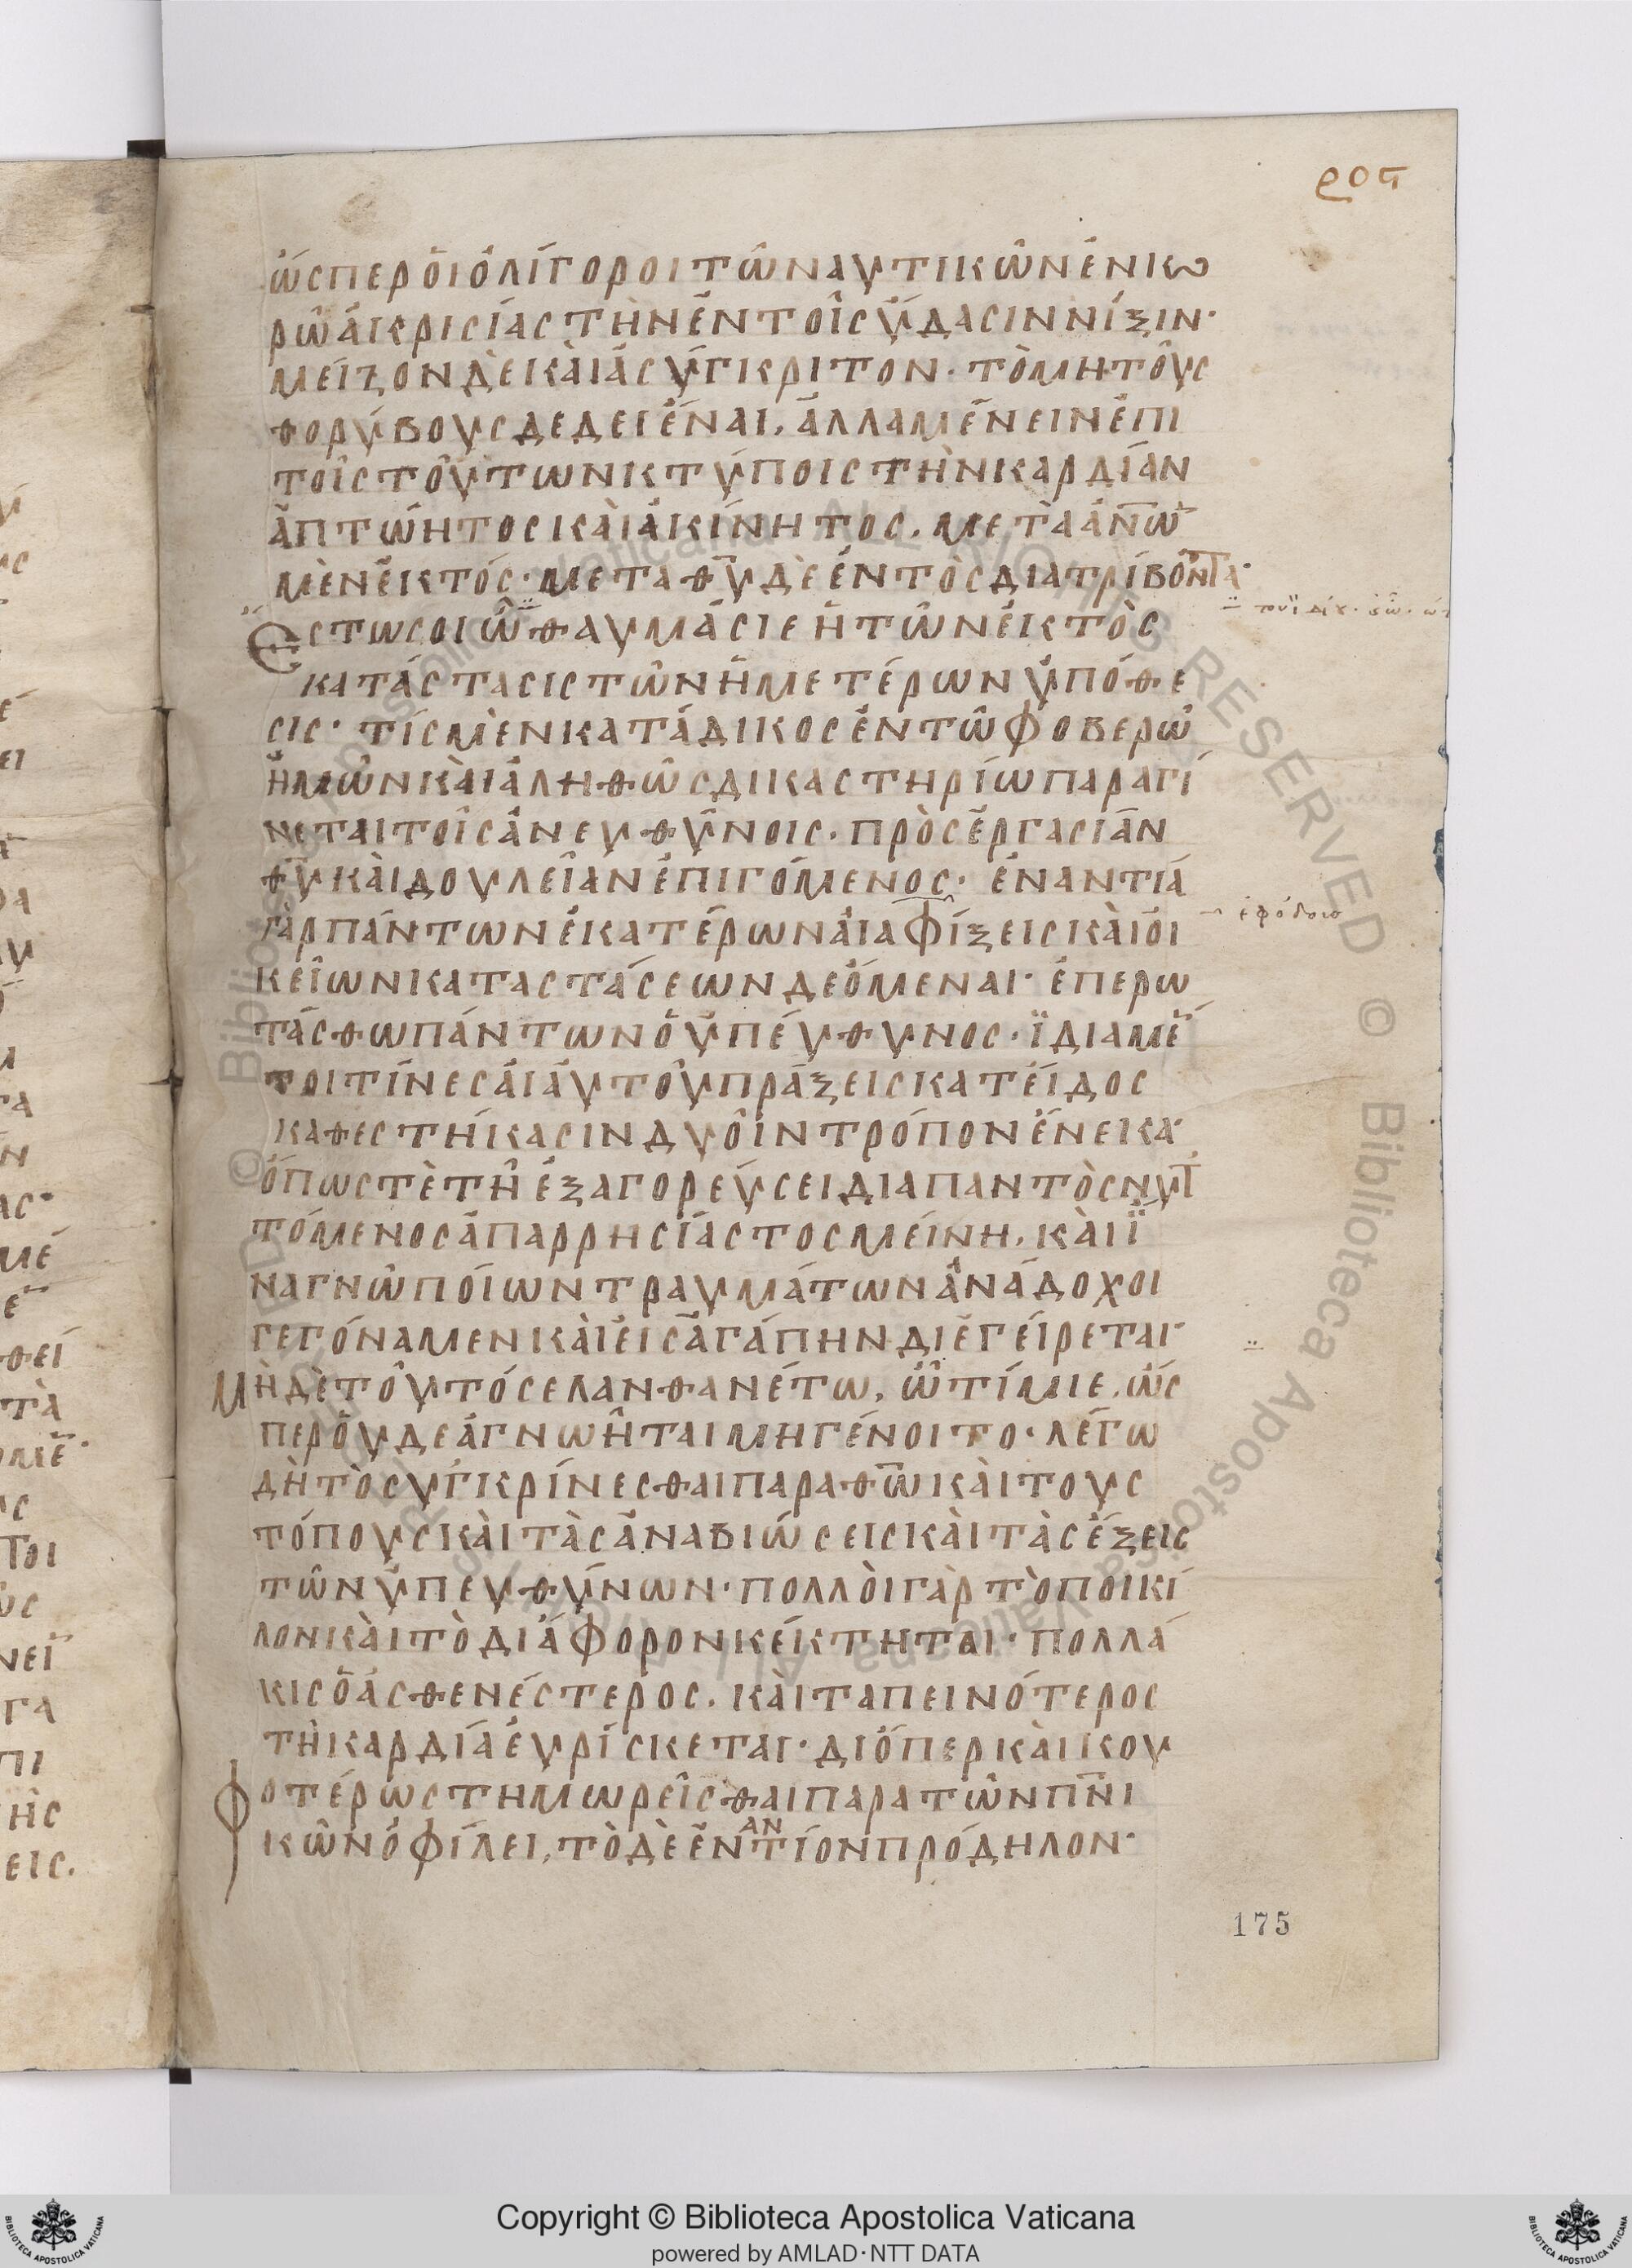 ϙοϛ
ὥσπερ ὅι ὀλίγοροι τῶ ναυτικῶν ἐν κω
ρῶ ἀικρισίας τὴν ἐν τοῖς ὕδασιν νίξιν·
μείζον δὲ κὰι ἀσύγκριτον· τὸ μη τοὺς
θορύβους δεδειέναι, ἀλλα μένειν ἐπι
τοῖς τούτων κτύποις τὴν καρδίαν
ἀπτώητος κὰι ἀκίνητος, μετὰ ἀν̅ω̅
μὲν ἐκτός· μετα θ̅υ̅ δὲ ἐντὸς διατρίβοντα·
Ἔστω σοι ὦ θαυμάσιε ἡ τῶν ἐκτὸς
κατάστασις τῶν ἡμετέρων ὑπόθε
σις· τίς μὲν κατάδικος ἐν τῶ φοβερῶ
ἡμῶν κὰι ἀληθῶς δικαστηρίω παραγί
νεται τοῖς ἀνευθύνοις· πρὸς ἐργασίαν
θ̅υ̅ κὰι δουλείαν ἐπιγόμενος· ἐναντιά
γὰρ πάντων ἑκατέρων ἁι αφίξεις κὰι ὁι
κείων καταστάσεων δεόμεναι· ἐπερω
τάσθω πάντων ὁ ὑπέυθυνος· ϊδια μέ̅
τοι τίνες ἁι ἀυτοῦ πράξεις κατ είδος
καθεστήκασιν δυοῖν τρόπον ἕνεκα·
ὅπως τὲ τῆ ἐξαγορεύσει διαπαντὸς νυτ
τόμενος ἀπαρρησίαστος μείνη, κὰι ϊ
να γνῶ ποίων τραυμάτων ἀνάδοχοι
γεγόναμεν κὰι εἰς ἀγάπην διεγείρεται·
Μὴ δὲ τοῦτό σε λανθανέτω, ὦ τίμιε, ὥσ
περ οὐδε ἀγνωῆται μη γένοιτο· λέγω
δὴ τὸ συγκρίνεσθαι παρα θ̅ω̅ κὰι τους
τόπους κὰι τὰς ἀναβιώσεις κὰι τὰς ἕξεις
τῶν ὑπευθύνων· πολλὸι γὰρ τὸ ποικί
λον κὰι τὸ διάφορον κέκτηται· πολλά
κις ὁ ἀσθενέστερος, κὰι ταπεινότερος
τὴ καρδία ἑυρίσκεται· διόπερ κὰι κου
φοτέρως τημωρεῖσθαι παρα τῶν π̅ν̅ι
κῶν ὀφίλει, τὸ δὲ ἐναντίον πρόδηλον·
ἐφόδοις
175
Copyright © Biblioteca Apostolica Vaticana
powered by AMLAD·NTT DATA